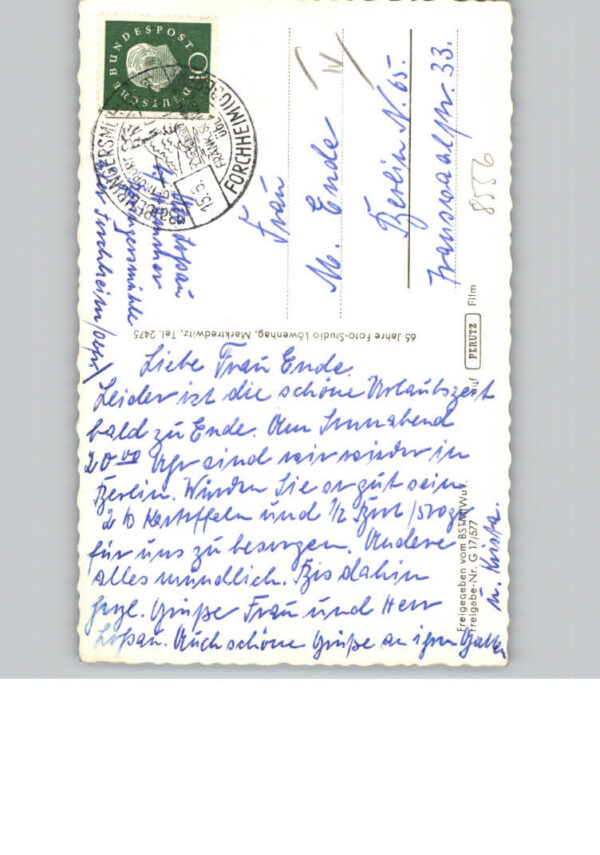 DEUTSCHE BUNDESPOST
10
BEHRINGERSMÜHLE
LUFTKURORT
FRÄNK. SCHWEIZ
ÜBER
FORCHHEIM (OBERFR)
15.
Frau
M. Ende
Berlin N. 65.
Transvaalstr. 33.
IV
8556
Abs. Loßau
Behringersmühle
über Forchheim/Obfr/
65 Jahre Foto-Studio Löwenhag, Marktredwitz, Tel. 2475
auf PERUTZ Film
Freigegeben vom BSTMWuV.
Freigabe-Nr. G 17/577
Liebe Frau Ende.
Leider ist die schöne Urlaubszeit
bald zu Ende. Am Sonnabend
20 00 Uhr sind wir wieder in
Berlin. Würden Sie so gut sein
2 lb Kartoffeln und 1/2 Brot /500g/
für uns zu besorgen. Andere
alles mündlich. Bis dahin
herzl. Grüße Frau und Herr
Loßau. Auch schöne Grüße an ihren Gatten
u. Krista.